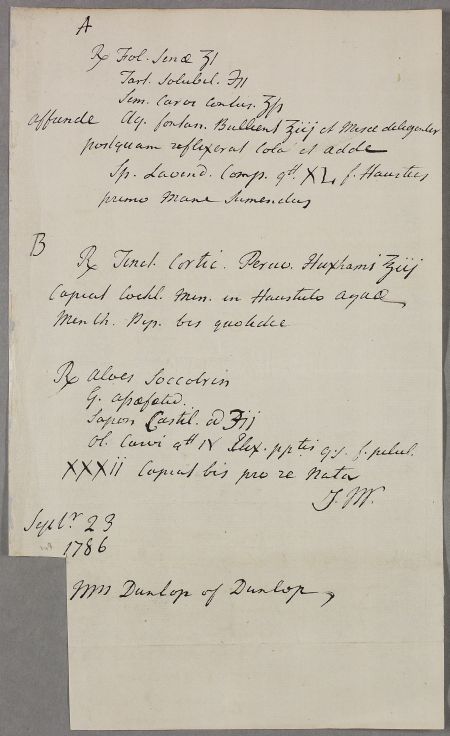 A
℞ Fol. Senæ ʒi
Tart. Solubil. ʒii
Sem. Carvi Contus. ʒſs
affunde Aq. fontan. Bullient ℥iij et Misce deligenter
postquam reflexerat Cola et adde
Sp. Lavend. Comp. gtt XL f. Haustus
primo Mane Sumendus
B
℞ Tinct. Cortic. Peruv. Huxhami ℥iij
Capiat Cochl. Min. in Haustulo aquæ
Menth. Pip. bis quotidie
℞ Aloes Soccotrin
G. asafœtid.
Sapon Castil. aʒij
Ol. Carvi gtt IV Elix. pptis q.s. f. pilul.
XXXii Capiat bis pro re Nata
J. M.
Septr. 23
1786
Mrs Dunlop of Dunlop,